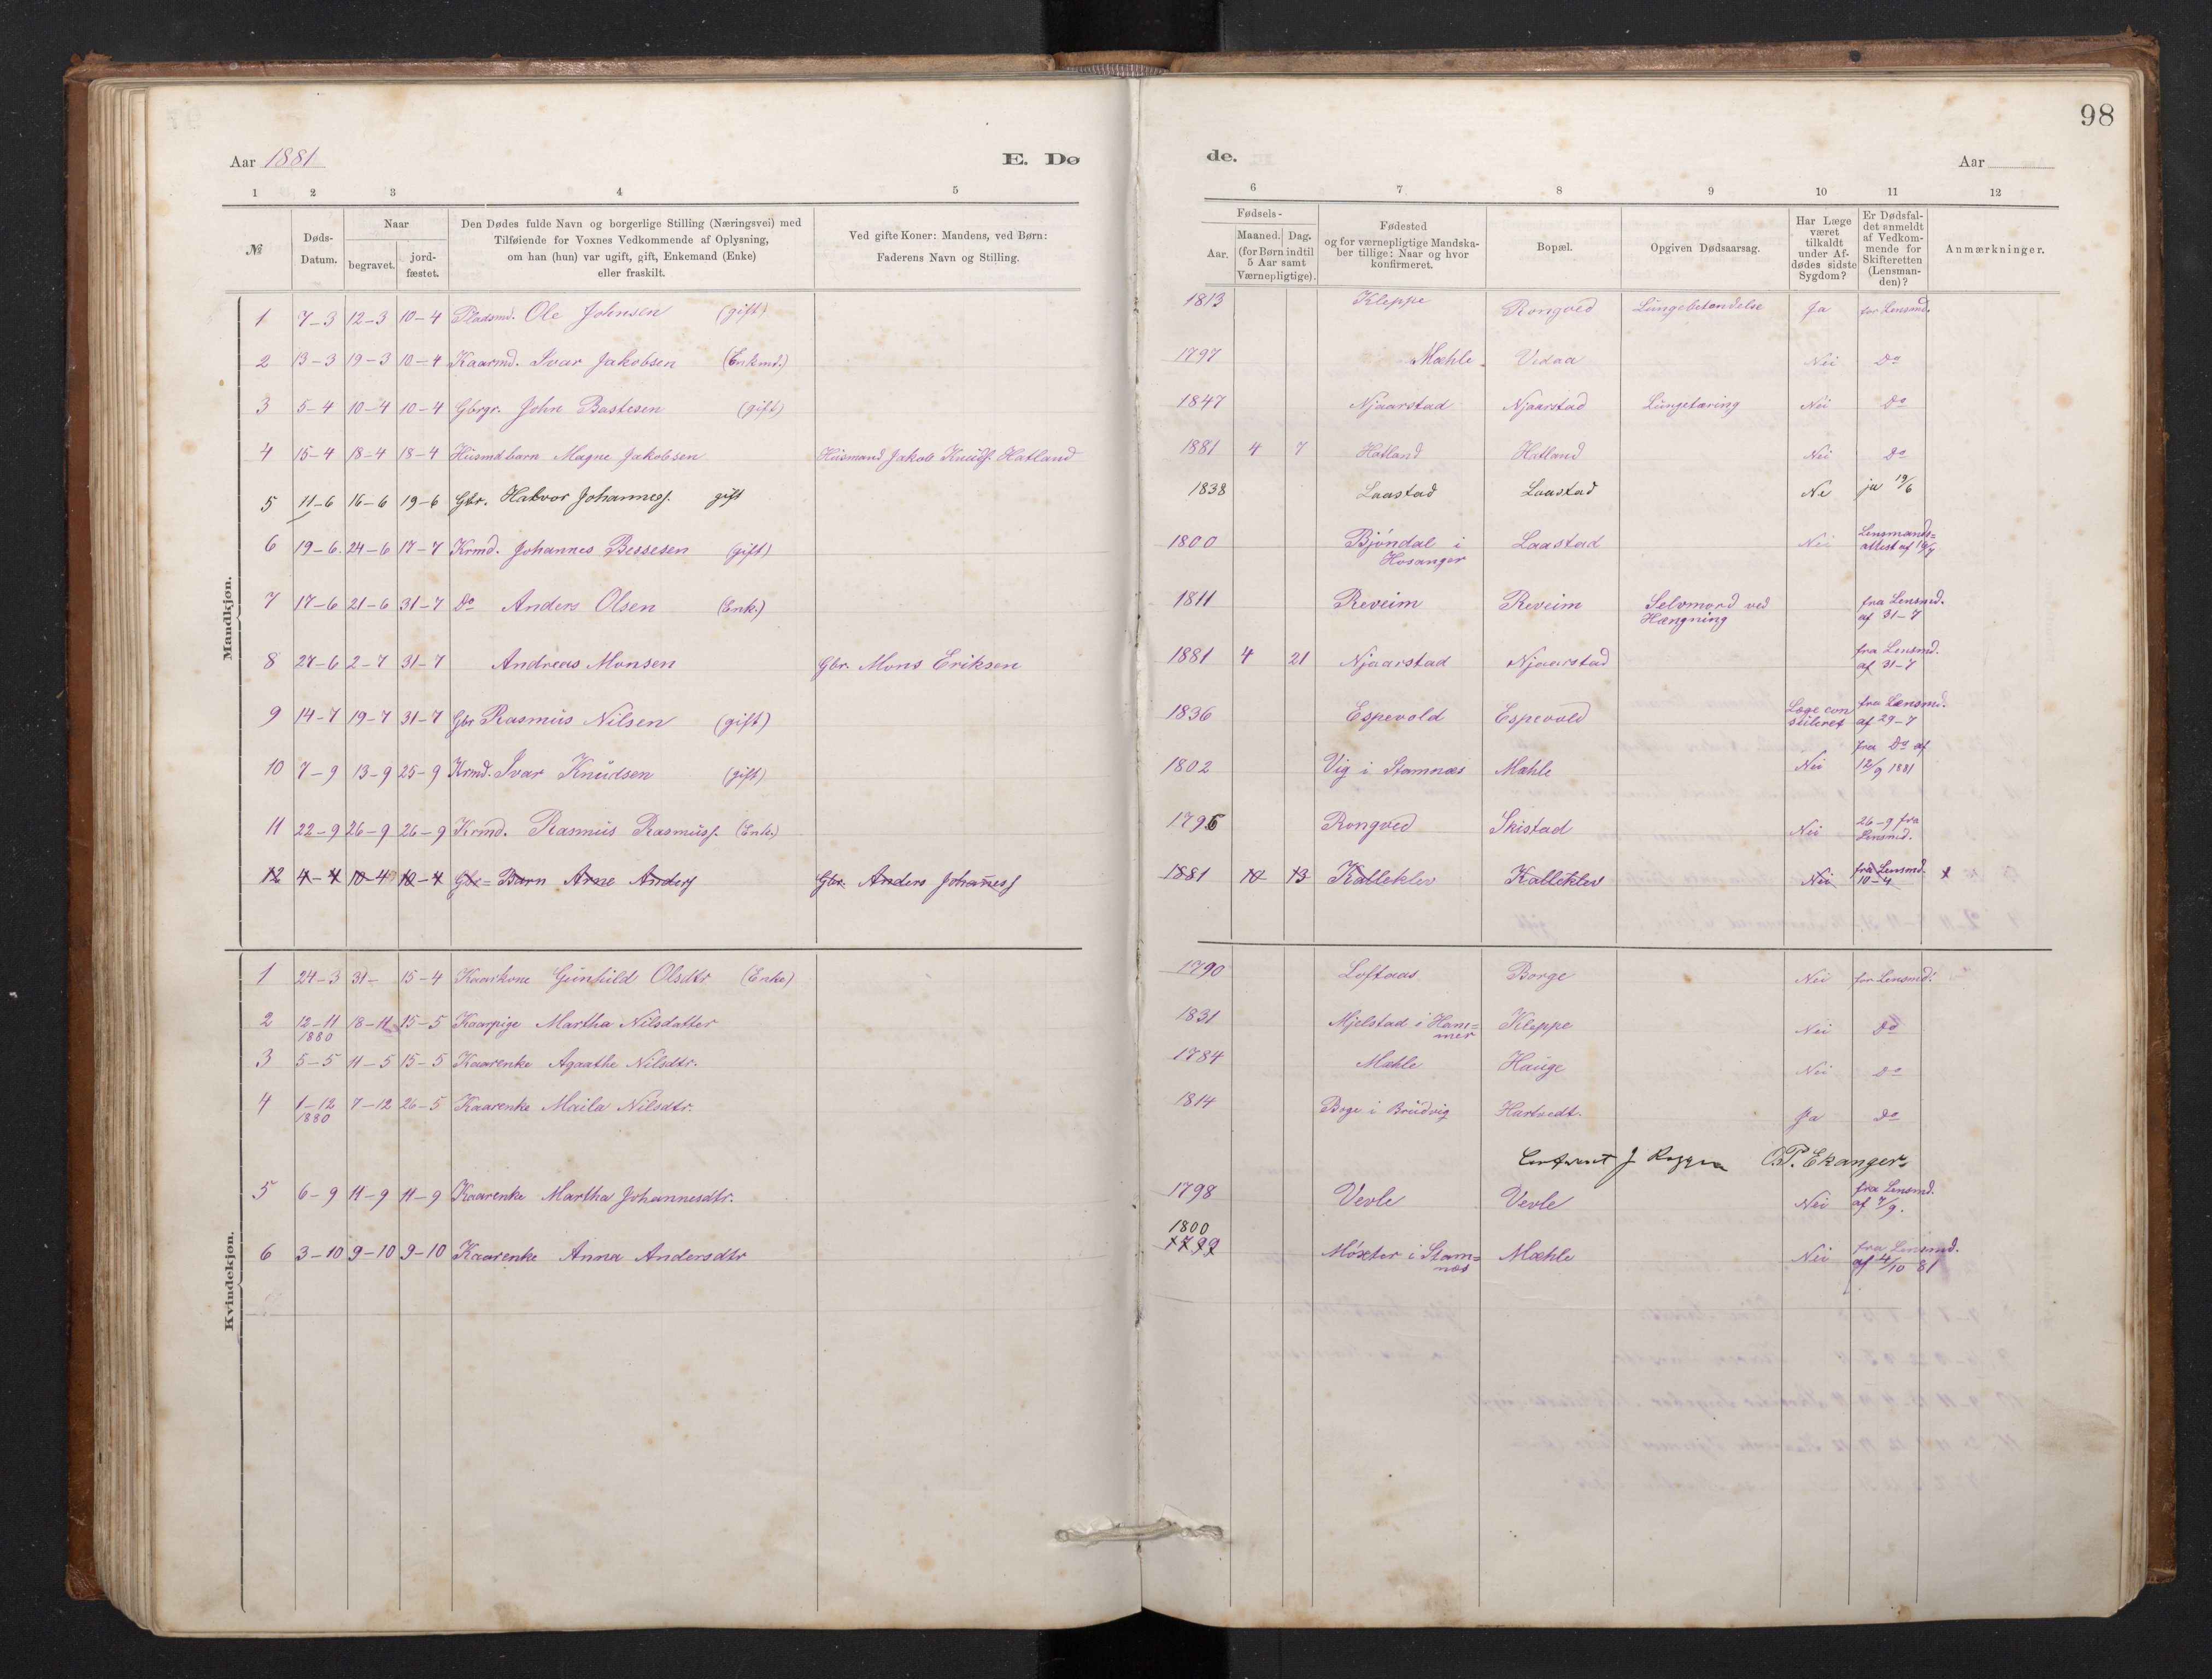 98
Aar 1881 E. Dø de. Aar
1 2 3 4 5 6 7 8 9 10 11 12
№
Døds-
Datum.
Naar
begravet.
jord-
fæstet.
Den Dødes fulde Navn og borgerlige Stilling (Næringsvei) med
Tilføiende for Voxnes Vedkommende af Oplysning,
om han (hun) var ugift, gift, Enkemand (Enke)
eller fraskilt.
Ved gifte Koner: Mandens, ved Børn:
Faderens Navn og Stilling.
Fødsels-
Aar.
Maaned. Dag.
(for Børn indtil
5 Aar samt
Værnepligtige).
Fødested
og for værnepligtige Mandska-
ber tillige: Naar og hvor
konfirmeret.
Bopæl.
Opgiven Dødsaarsag.
Har Læge
været
tilkaldt
under Af-
dødes sidste
Sygdom?
Er Dødsfal-
det anmeldt
af Vedkom-
mende for
Skifteretten
(Lensman-
den)?
Anmærkninger.
Mandkjøn.
1 7-3 12-3 10-4 Pladsmd. Ole Johnsen (gift) 1813 Kleppe Rongved Lungebetændelse Ja for Lensmd.
2 13-3 19-3 10-4 Kaarmd. Ivar Jakobsen (Enkmd.) 1797 Mæhle Vidaa Nei Do
3 5-4 10-4 10-4 Gbrgr. John Bastesen (gift) 1847 Njaarstad Njaarstad Lungetæring Nei Do
4 15-4 18-4 18-4 Husmdbarn Magne Jakobsen Husmand Jakob Knuds. Hatland 1881 4 7 Hatland Hatland Nei Do
5 11-6 16-6 19-6 Gbr. Halvor Johannes. gift 1838 Laastad Laastad Ne ja 19/6
6 19-6 24-6 17-7 Krmd. Johannes Bessesen (gift) 1800 Bjöndal i Hosanger Laastad Nei Lensmands=
attest af 14/7
7 17-6 21-6 31-7 Do Anders Olsen (Enk.) 1811 Reveim Reveim Selvmord ved
Hængning fra Lensmd.
af 31-7
8 27-6 2-7 31-7 Andreas Monsen Gbr. Mons Eriksen 1881 4 21 Njaarstad Njaarstad fra Lensmd.
af 31-7
9 14-7 19-7 31-7 Gbr Rasmus Nilsen (gift) 1836 Espevold Espevold Læge con
suleret fra Lænsmd.
af 29-7
10 7-9 13-9 25-9 Krmd. Ivar Knudsen (gift) 1802 Vig i Stamnæs Mæhle Nei fra Do af
12/9 1881
11 22-9 26-9 26-9 Krmd. Rasmus Rasmuss. (Enk.) 1795 Rongved Skistad Nei 26-9 fra
Lensmd.
12 4-4 10-4 10-4 Gbr= Barn Arne Anders Gbr. Anders Johannes 1881 10 13 Kalleklev Kalleklev Nei fra Lensmd.
10-4
Kvindekjøn.
1 24-3 31- 15-4 Kaarkone Gunhild Olsdtr (Enke) 1790 Loftaas Borge Nei for Lensmd.
2 12-11
1880 18-11 15-5 Kaarpige Martha Nilsdatter 1831 Mjelstad i Ham=
mer Kleppe Nei Do
3 5-5 11-5 15-5 Kaarenke Agaathe Nilsdtr. 1784 Mæhle Hauge Nei Do
4 1-12
1880 7-12 26-5 Kaarenke Maila Nilsdtr. 1814 Boge i Brudvig Hartvedt. Ja Do
O.P. Ekanger
5 6-9 11-9 11-9 Kaarenke Martha Johannesdtr. 1798 Vevle Vevle Nei fra Lensmd.
af 7/9.
6 3-10 9-10 9-10 Kaarenke Anna Andersdtr 1800
1799 Möxter i Stam=
næs Mæhle Nei fra Lensmd.
af 4/10 81